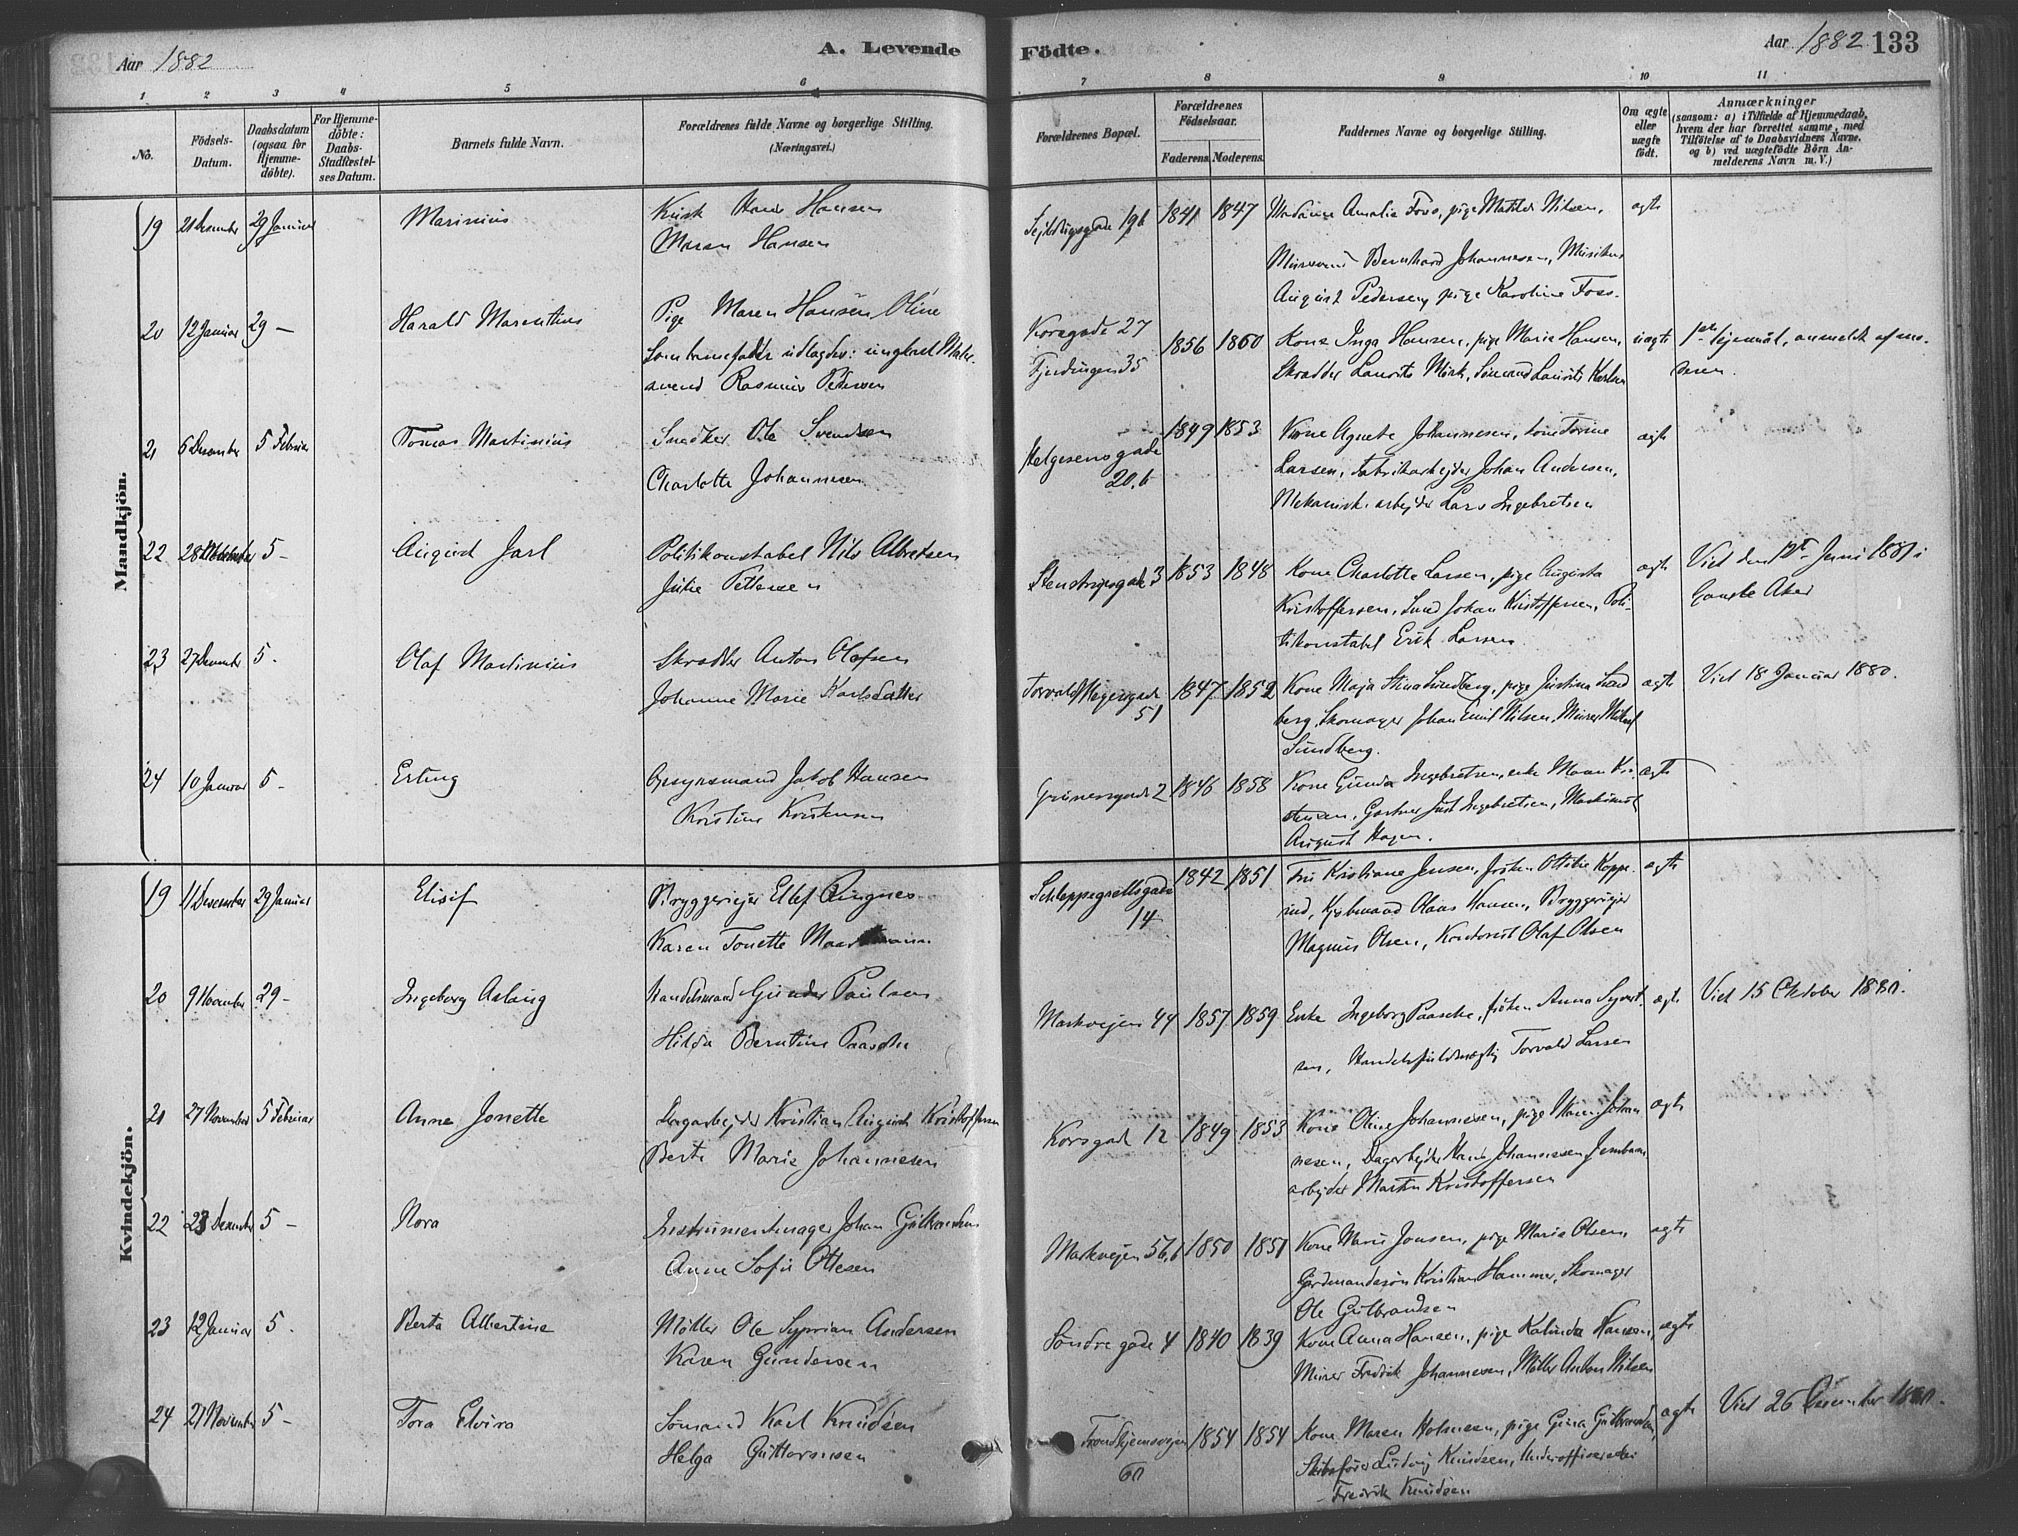 Aar 1882
A. Levende Födte.
Aar 1882 133
1 2 3 4 5 6 7 8 9 10 11
No.
Födsels-Datum.
Daabsdatum (ogsaa for Hjemme-döbte).
For Hjemme-döbte: Daabs-Stadfæstel-ses Datum.
Barnets fulde Navn.
Forældrenes fulde Navne og borgerlige Stilling. (Næringsvei.)
Forældrenes Bopæl.
Forældrenes Födselsaar.
Faderens Moderens.
Faddernes Navne og borgerlige Stilling.
Om ægte eller uægte födt.
Anmærkninger
(saasom: a) i Tilfælde af Hjemmedaab,
hvem der har forrettet samme, med
Tilföielse af to Daabsvidners Navne.
og b) ved uægtefödte Börn An-
melderens Navn m. V.)
Mandkjön.
19 21 Desember 29 Januar Marinius
Kusk Hans Hansen
Maren Hansen
1841 1847
Madame Amalie Foss, pige Matilde Nilsen,
Murersvend Bernhard Johannesen, Musikus
August Pedersen, pige Karoline Foss.
ægte
20 12 Januar 29 – Harald Marentius
Pige Maren Hansen Oline
som barnefader udlagdes: ungkarl Maler-
svend Rasmus Petersen
Korsgade 27
Fjerdingen 35
1856 1860
Kone Inga Hansen, pige Marie Hansen,
Skrædder Laurits Mörk, Sömand Laurits Karlsen
uægte
1ste lejermål, anmeldt af mo-
deren.
21 6 Desember 5 Februar Tomas Martinius
Snedker Ole Svendsen
Charlotte Johannesen
Helgesensgade
20.b
1849 1853
Kone Agnete Johannesen, kone Torine
Larsen, fabrikarbejder Johan Andersen,
Mekanisk arbejder Lars Ingebretsen
ægte
22 28 5 – August Jarl
Politikonstabel Nils Albretsen
Julie Pettersen
Stenstrupsgade 3
1853 1848
Kone Charlotte Larsen, pige Augusta
Kristoffersen, Smed Johan Kristoffersen, Poli-
tikonstabel Erik Larsen
ægte
Viet den 12te Juni 1881 i
Gamle Aker
23 27 Desember 5. Olaf Martinius
Skrædder Anton Olafsen
Johanne Marie Karlsdatter
Torvald Meyersgade
51
1847 1852
Kone Maja Stina Sundberg, pige Justina Sund-
berg, Skomager Johan Emil Nilsen, Murer Mikael
Sundberg.
ægte
Viet 18 Januar 1880.
24 10 Januar 5 – Erling
Opsynsmand Jakob Hansen
Kristine Kristensen
Grünersgade 2
1846 1858
Kone Gunda Ingebretsen, enke Maren Kri-
stensen, Gartner Just Ingebretsen, Maskinist
August Hagen.
ægte
Kvindekjön.
19 11 Desember 29 Januar Elisif
Bryggerieier Ellef Ringnes
Karen Tonette
Schleppegrellsgade
14
1842 1851
Fru Kristiane Jensen, fröken Ottilie Koppe-
rud, Kjöbmand Olaus Hansen, Bryggerieier
Magnus Olsen, Kontorist Olaf Olsen
ægte
20 9 November 29 – Ingeborg Aslaug
Handelsmand Gunder Paulsen
Hilda Berntine Paasche
Markvejen 44
1857 1859
Enke Ingeborg Paasche, fröken Anna Syvert-
sen, Handelsfuldmægtig Torvald Larsen
ægte
Viet 15 Oktober 1880.
21 27 November 5 Februar Anne Jonette
Dagarbejder Kristian August Kristoffersen
Berte Marie Johannesen
Korsgade 12
1849 1853
Kone Oline Johannesen, pige Maren Johan-
nesen, Dagarbejder Hans Johannesen, Jernbane-
arbejder Martin Kristoffersen
ægte
22 23 Desember 5 – Nora
Instrumentmager Johan Gulbrandsen
Anne Sofie Ottesen
Markvejen 56.b
1850 1851
Kone Marie Jonsen, pige Marie Olsen,
Gårdmandssön Kristian Hammer, Skomager
Ole Gulbrandsen
ægte
23 12 Januar 5. Berta Albertine
Möller Ole Syprian Andersen
Karen Gundersen
Söndregade 4
1840 1839
Kone Anna Hansen, pige Kalinda Hansen,
Murer Fredrik Johannesen, Möller Anton Nilsen
ægte
24 27 November 5 – Tora Elvira
Sömand Karl Knudsen
Helga Guttormsen
Trondhjemsvejen
60
1854 1854
Kone Maren Holmesen, pige Gina Gulbrandsen,
Skibsförer Ludvig Knudsen, Underofficerselev
Fredrik Knudsen
ægte
Viet 26 Desember 1880.